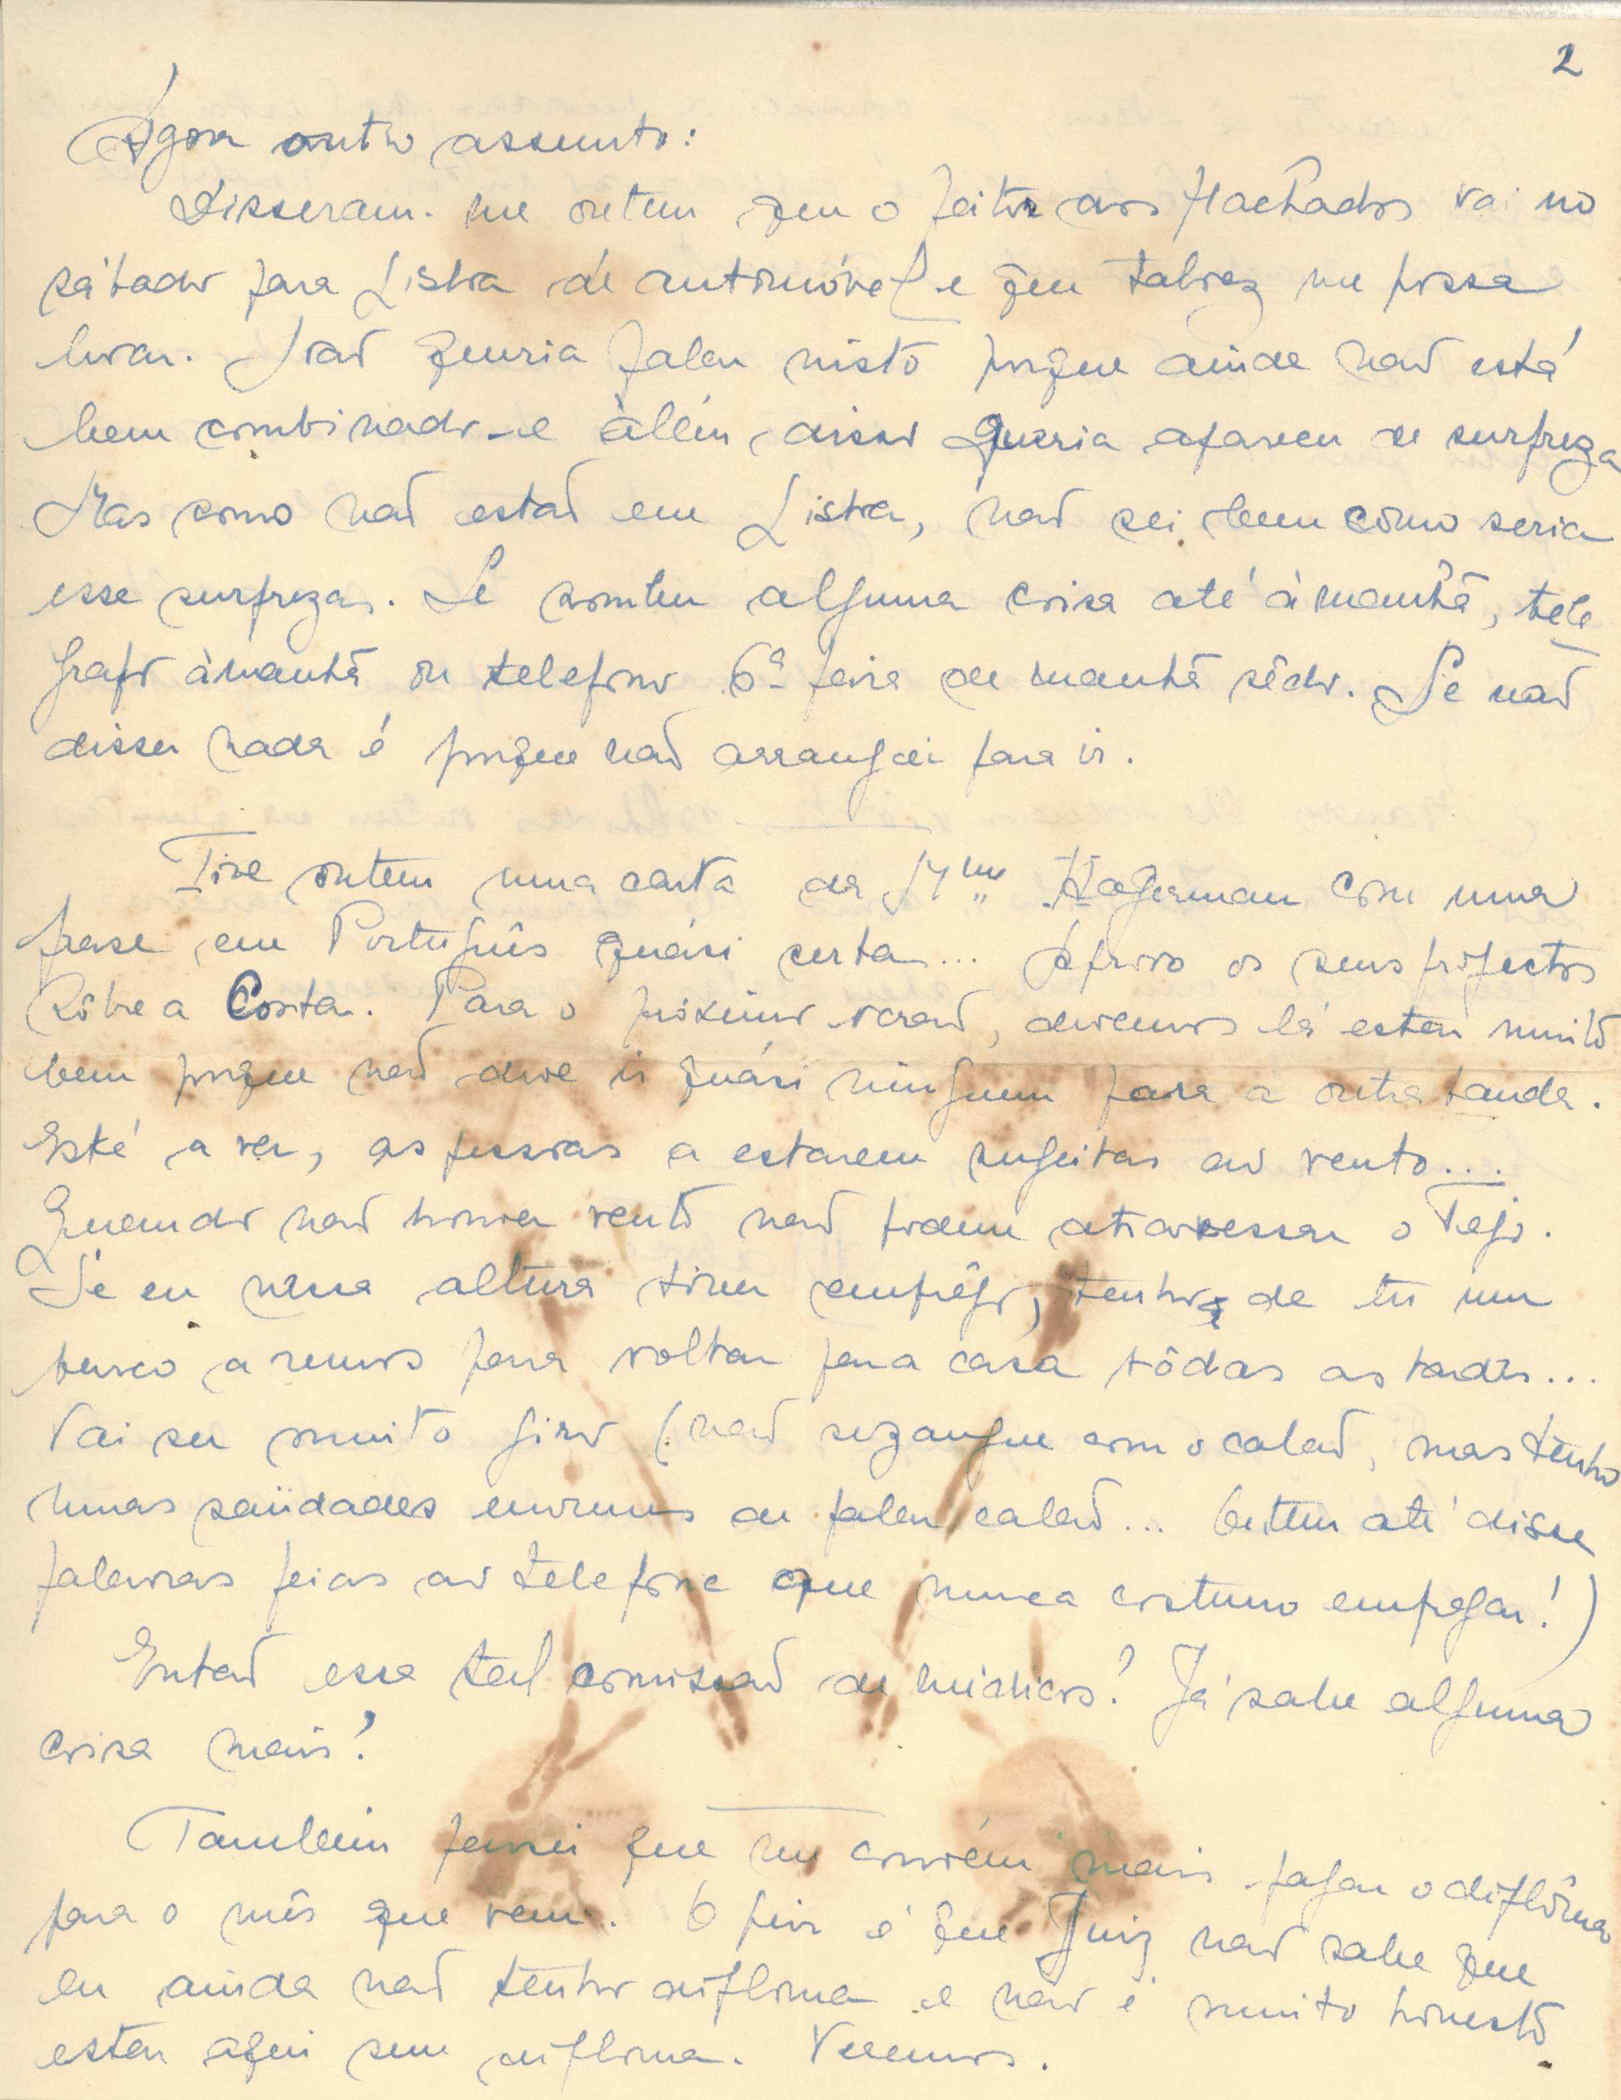 2
Agora outro assunto:
Disseram-me ontem que o feitor dos Machados vai no
sábado para Lisboa de automóvel e que talvez me possa
levar. Não queria falar nisto porque ainda não está
bem combinado e àlém disso queria aparecer de surpreza
Mas como não estão em Lisboa, não sei bem como seria
esse surpreza. Se souber alguma coisa até àmanhã, tele
grafo àmanhã ou telefono 6ª feira de manhã cêdo. Se não
disser nada é porque não arranjei para ir.
Tive ontem uma carta da Mme Hagerman com uma
frase em Português quási certa... Aprovo os seus projectos
sôbre a Costa. Para o próximo verão, devemos lá estar muito
bem porque não deve ir quási ninguem para a outra banda.
Está a ver, as pessoas a estarem sugeitas ao vento...
Quando não houver vento não podem atravessar o Tejo.
Se eu nessa altura tiver emprêgo, tenho de ter um
barco a remos para voltar para casa tôdas as tardes...
Vai ser muito giro (não se zangue com o calão, mas tenho
umas saüdades enormes de falar calão... Ontem até disse
palavras feias ao telefone que nunca costumo empregar!)
Então essa tal comissão de médicos? Já sabe alguma
coisa mais?
Tambem pensei que me convém mais pagar o diplôma
para o mês que vem. O pior é que Juiz não sabe que
eu ainda não tenho diploma e não é muito honesto
estar aqui sem diploma. Veremos.